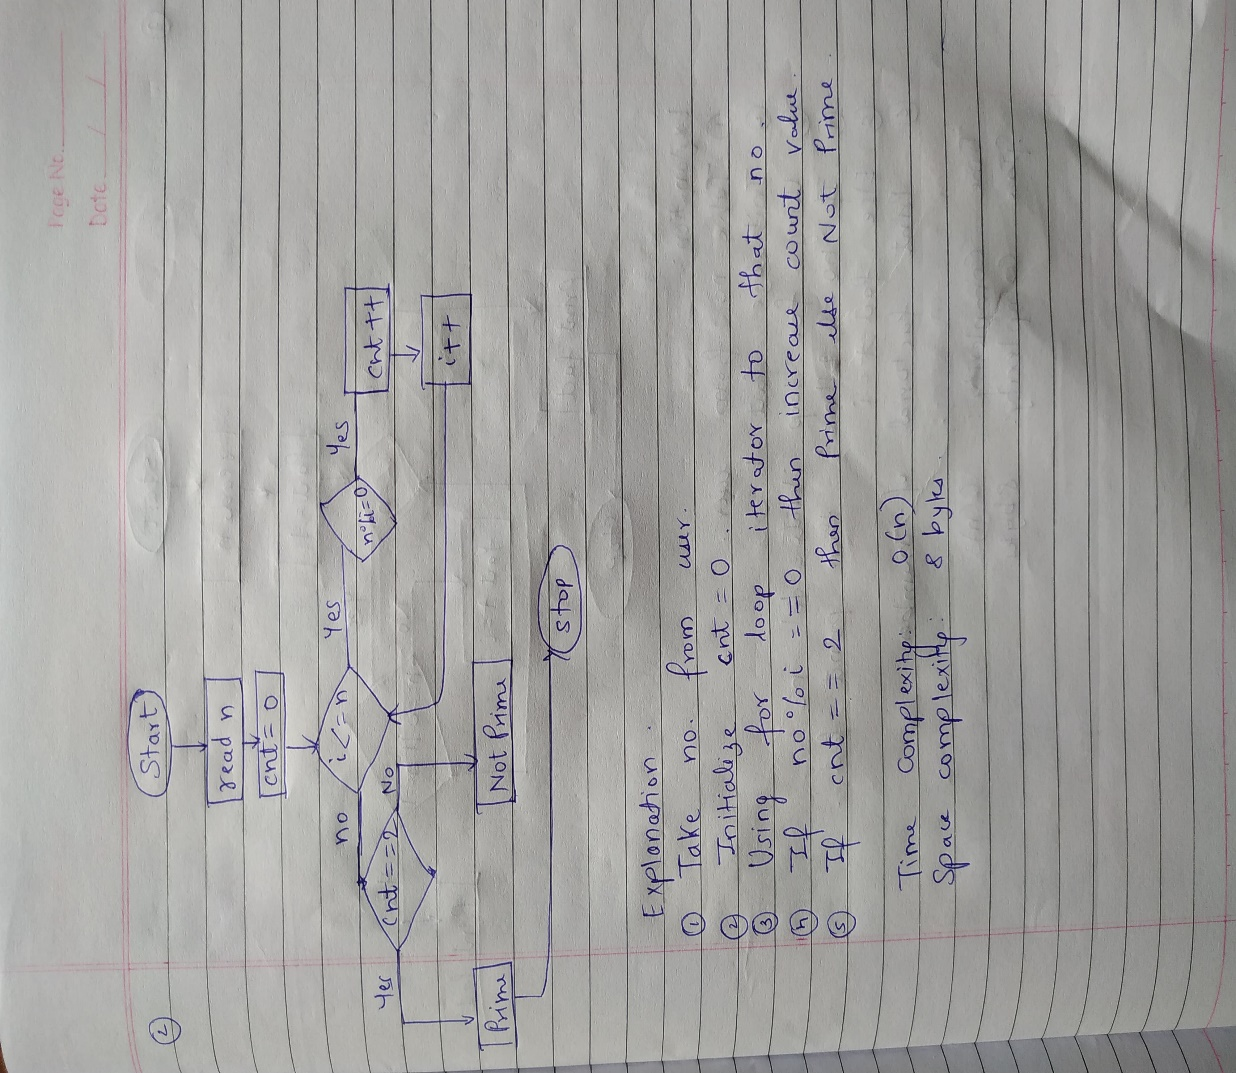 Page No.
Date
②
Start
read n
cnt = 0
i <= n
no
Yes
n%i=0
Yes
cnt ++
i++
cnt == 2
Yes
No
Prime
Not Prime
Stop
Explanation.
① Take no. from user.
② Initialize cnt = 0.
③ Using for loop iterator to that no.
④ If no % i == 0 then increase count value.
⑤ If cnt == 2 then Prime else Not Prime.
Time complexity: O(n)
Space complexity: 8 bytes.